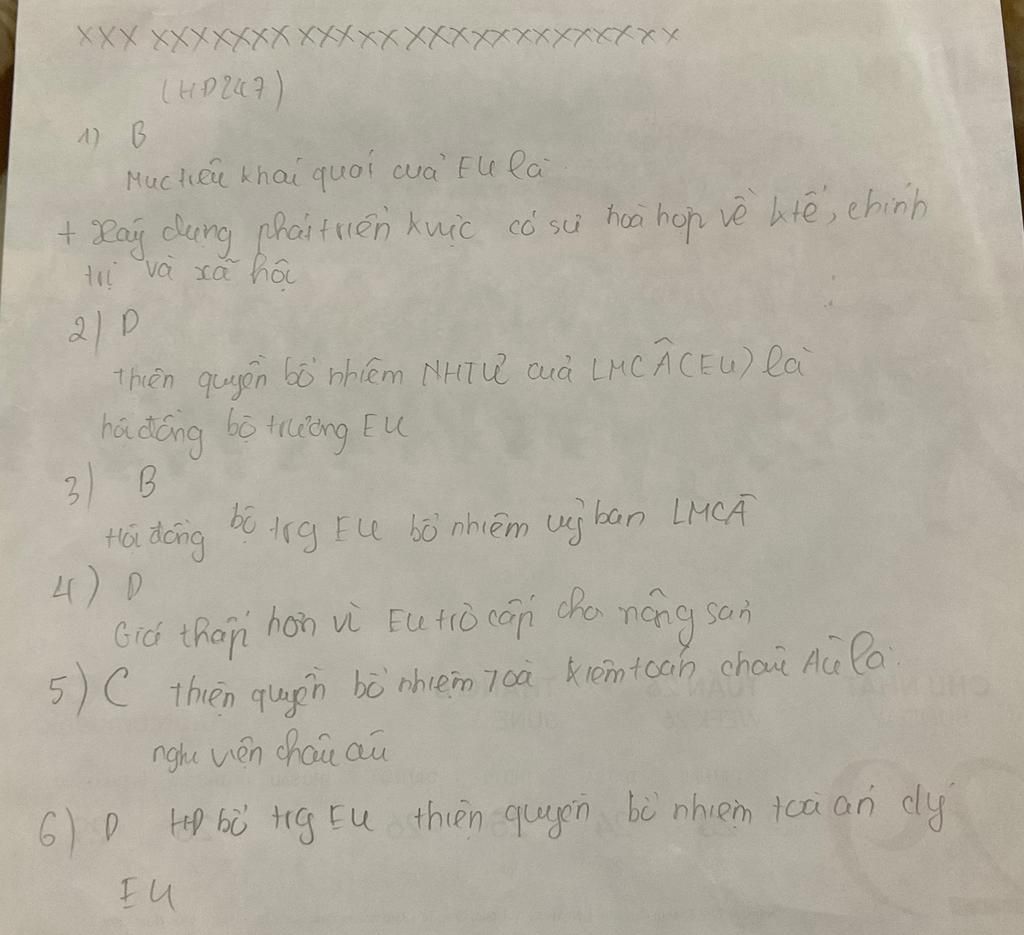 XXX XXXXXXX XXXXX XXXXXXXXXXXXXX
(HD247)
1) B
Mục tiêu khái quát của EU là
+ Xây dựng phát triển kvực có sự hoà hợp về ktế, chính
trị và xã hội
2) D
thiên quyền bổ nhiệm NHTƯ của LMCÂ (EU) là
hội đồng bộ trưởng EU
3) B
Hội đồng bộ trg EU bổ nhiệm uỷ ban LMCÂ
4) D
Giá thấp hơn vì EU trò cấp cho nông sản
5) C thiện quyền bổ nhiệm Toà kiểm toán châu Âu là
nghị viện châu âu
6) D HĐ bộ trg EU thiện quyền bổ nhiệm toà án
EU